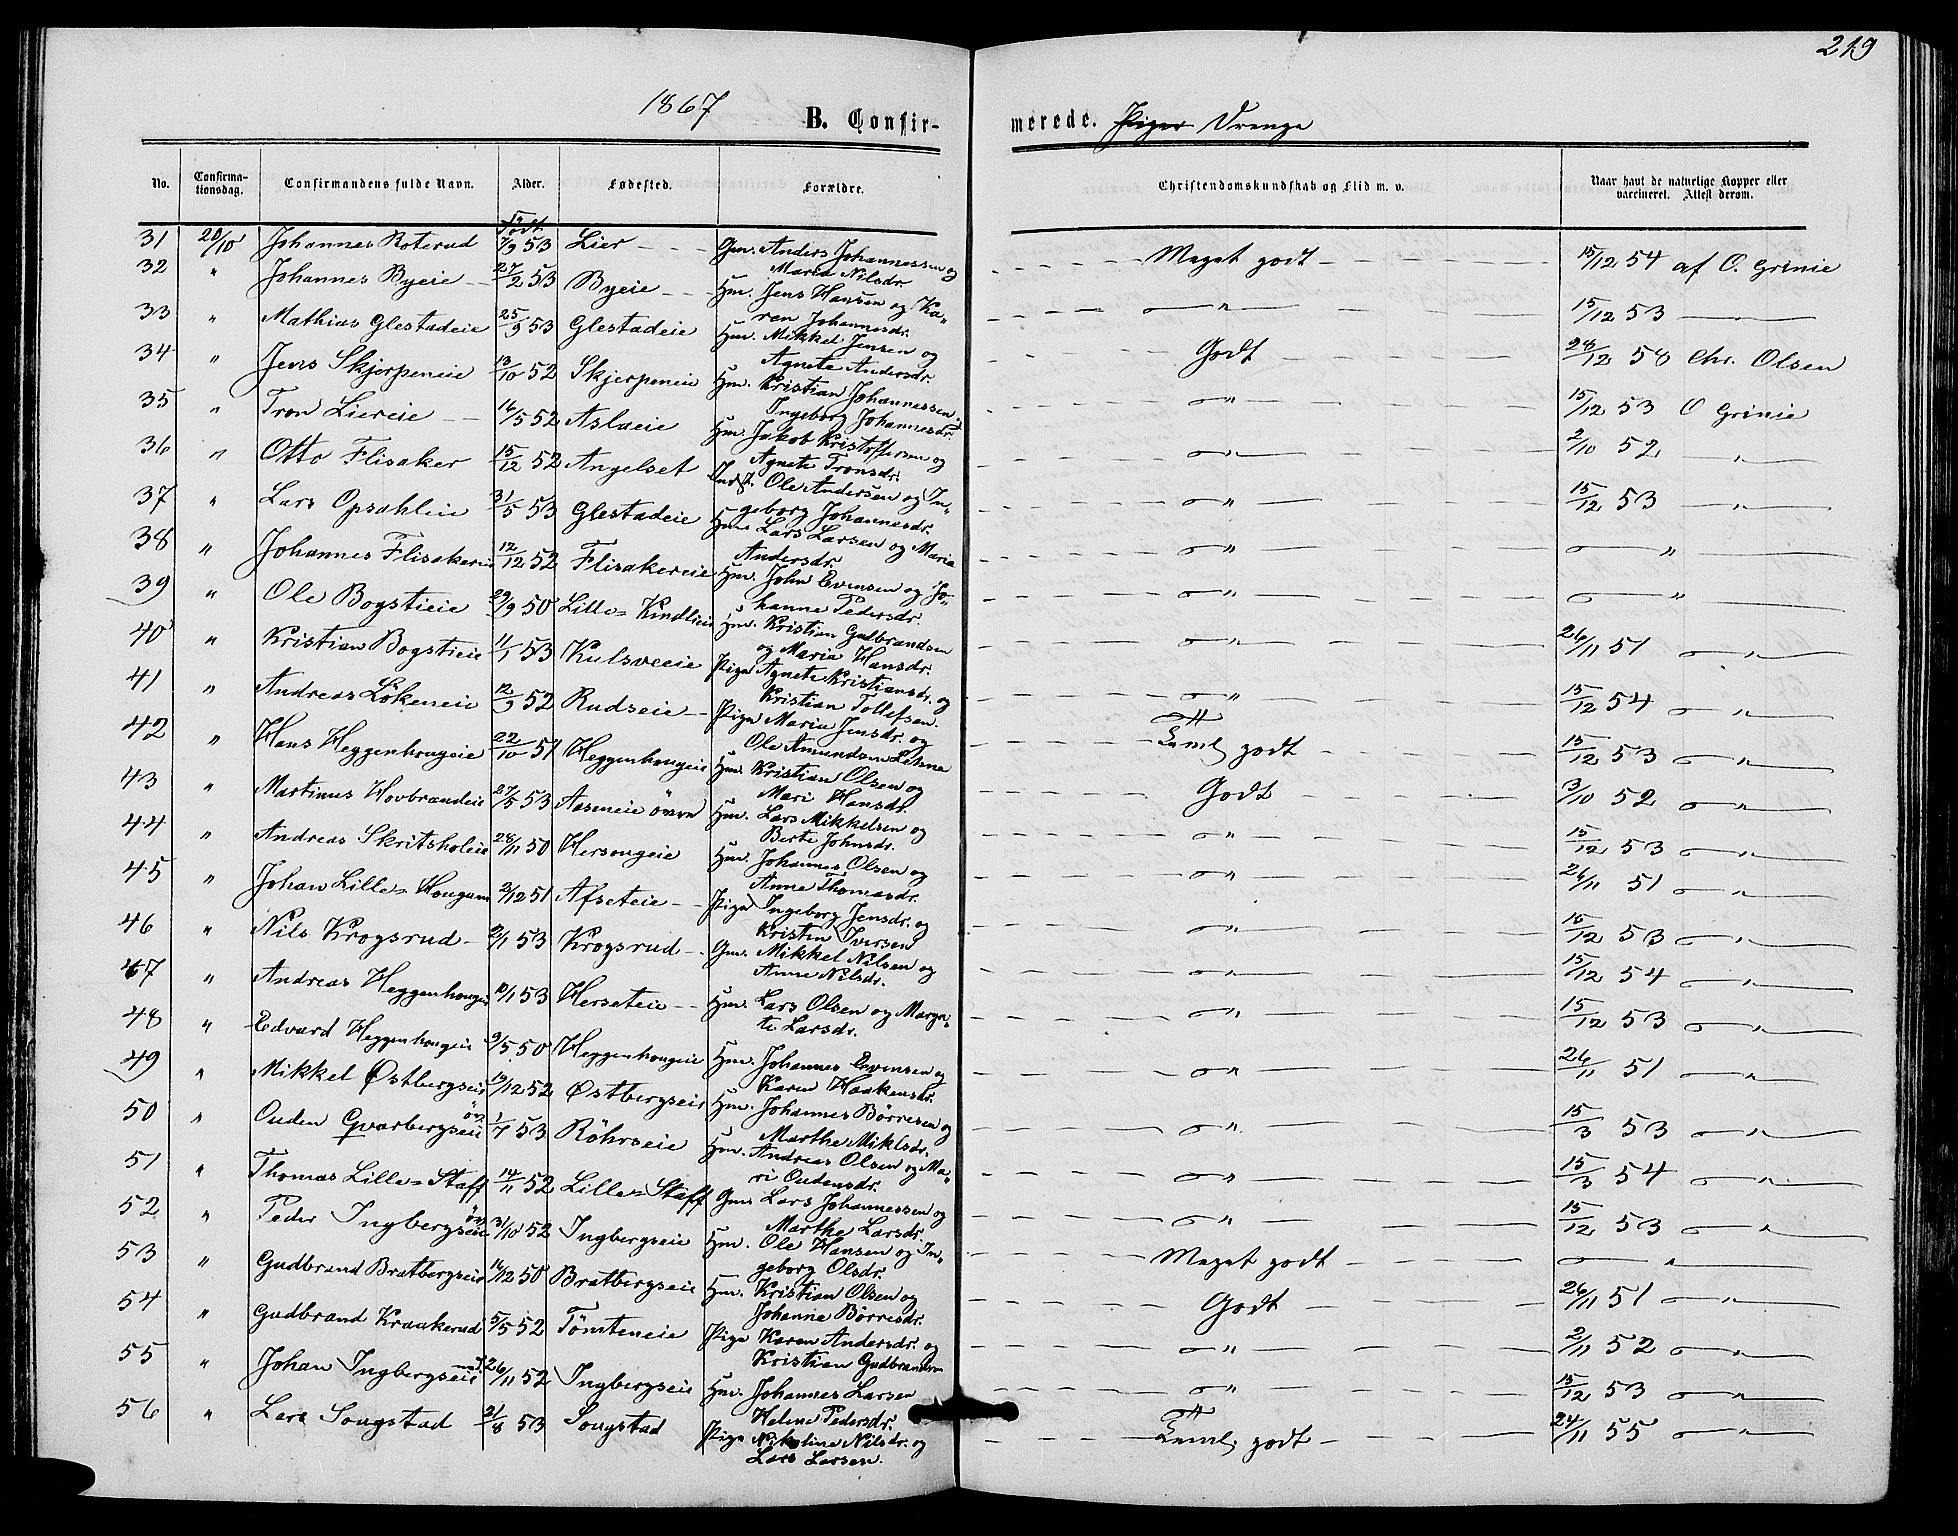 219
1867 B. Confirmerede. Piger Drenge
No. Confirmationsdag. Confirmandens fulde Navn. Alder. Fødested. Forældre. Christendomskundskab og Flid m. v. Naar havt de naturlige Kopper eller vaccineret. Attest derom.
Født
31 20/10 Johannes Roterud 7/9 53 Lier Gm. Anders Johannessen og Maria Nilsdr. Meget godt 15/12 54 af O. Grinie
32 " Johannes Byeie 27/2 53 Byeie Hm. Jens Hansen og Karen Johannesdr. " 15/12 53 "
33 " Mathias Glestadeie 25/9 53 Glestadeie Hm. Mikkel Jensen og Agnete Andersdr. Godt 28/12 58 Chr. Olsen
34 " Jens Skjerpeneie 13/10 52 Skjerpeneie Hm. Kristian Johannessen og Ingeborg Johannesdr. " 15/12 53 O Grinie
35 " Tron Liereie 16/5 52 Aslaeie Hm. Jakob Kristoffersen og Agnete Tronsdr. " 2/10 52 "
36 " Otto Flisaker 15/12 52 Angelset Inds. Ole Andersen og Ingeborg Johannesdr. " 15/12 53 "
37 " Lars Opsahlen 31/5 53 Glestadeie Hm. Lars Larsen og Maria Andersdr. " "
38 " Johannes Flisakereie 12/12 52 Flisakereie Hm. John Evensen og Johanne Pedersdr. " "
39 " Ole Bogstieie 29/9 50 Lille-Kindlieie Hm. Kristian Gudbrandsen og Maria Hansdr. " 26/11 51 "
40 " Kristian Bogstieie 11/1 53 Kulsveeie Pige Agnete Kristiansdr. og Kristian Tollefsen. " 15/12 54 "
41 " Andreas Løkeneie 12/9 52 Rudseie Pige Maria Jensdr. og Ole Amundsen Lehne Teml. godt 15/12 53 "
42 " Hans Heggenhougeie 22/10 51 Heggenhougeie Hm. Kristian Olsen og Mari Hansdr. Godt 3/10 52 "
43 " Martinus Hovbrændeie 27/5 53 Aasmeie övrn Hm. Lars Mikkelsen og Berte Johnsdr. " 15/12 53 "
44 " Andreas Skritsholeie 28/11 50 Hersougeie Hm. Johannes Olsen og Anne Thomasdr. " 26/11 51 "
45 " Johan Lille-Hougum 2/12 51 Afseteie Pige Ingeborg Jensdr. og Kristen Iversen " 15/12 53 "
46 " Nils Krogsrud 2/1 53 Krogsrud Gm. Mikkel Nilsen og Anne Nilsdr. " 15/12 54 "
47 " Andreas Heggenhougeie 10/1 53 Herseteie Hm. Lars Olsen og Margrete Larsdr. " 15/12 53 "
48 " Edvard Heggenhougeie 9/5 50 Heggenhougeie Hm. Johannes Evensen og Karen Haakensdr. " 26/11 51 "
49 " Mikkel Østbergseie 19/12 52 Østbergseie Hm. Johannes Börresen og Marthe Miklsdr. " 15/3 53 "
50 " Ouden Qvarbergseie öv. 1/7 53 Röhrseie Hm. Andreas Olsen og Mari Oudensdr. " 15/3 54 "
51 " Thomas Lille-Staff 14/11 52 Lille-Staff Gm. Lars Johannessen og Marthe Larsdr. " 15/12 53 "
52 " Peder Ingbergseie öv. 31/10 52 Ingbergseie Hm. Ole Hansen og Ingeborg Olsdr. Meget godt "
53 " Gudbrand Bratbergseie 14/12 50 Bratbergseie Hm. Kristian Olsen og Johanne Börresdr. Godt 26/11 51 "
54 " Gudbrand Kraakerud 5/5 52 Tömteneie Pige Karen Andersdr. og Kristian Gudbrandsen " 2/11 52 "
55 " Johan Ingbergseie ned. 26/11 52 Ingbergseie Hm. Johannes Larsen Helene Pedersdr. " 15/12 53 "
56 " Lars Sougstad 21/8 53 Sougstad Pige Nikoline Nilsdr. og Lars Larsen. Teml. godt 24/11 55 "